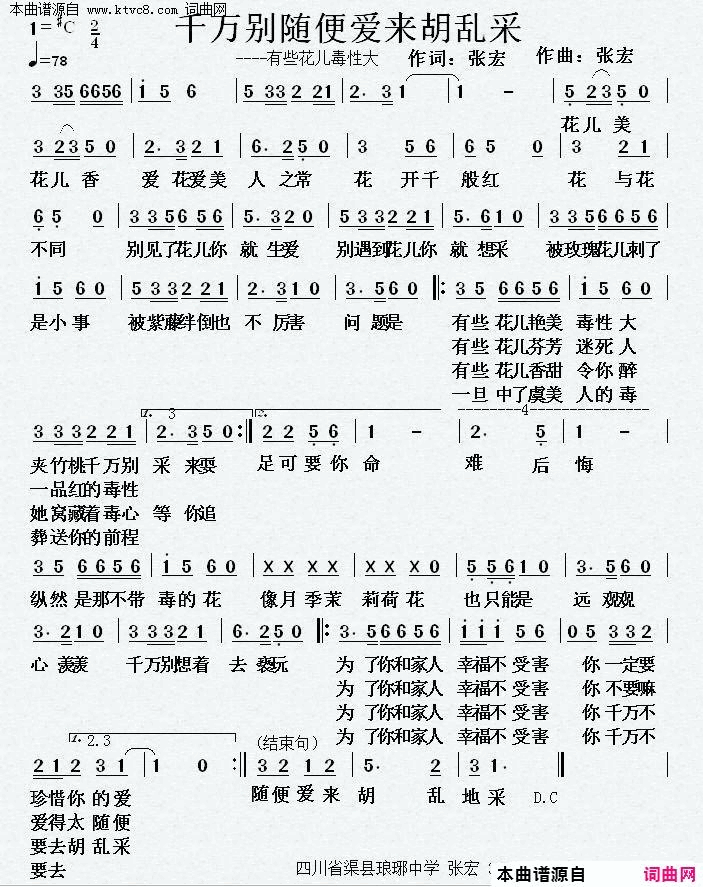 本曲谱源自 www.ktvc8.com 词曲网
千万别随便爱来胡乱采
1=#C 2/4
♩=78
----有些花儿毒性大 作词：张宏 作曲：张宏
3 35 6656 | i 5 6 | 5 33 2 21 | 2. 3 1 | 1 - | 5 23 5 0 |
花儿美
3 23 5 0 | 2. 3 2 1 | 6. 2 5 0 | 3 5 6 | 6 5 0 | 3 2 1 |
花儿香 爱花爱美 人之常 花 开千 般红 花 与花
6 5 0 | 3 3 5 6 5 6 | 5. 3 2 0 | 3 3 3 2 2 1 | 5. 6 1 0 | 6 6 6 5 6 5 6 |
不同 别见了花儿你 就生爱 别遇到花儿你 就想采 被玫瑰花儿刺了
i 5 6 0 | 5 5 3 3 2 2 1 | 2. 3 1 0 | 3. 5 6 0 |: 3 5 6 6 5 6 | i 5 6 |
是小事 被紫藤绊倒也 不厉害 问题是 有些花儿艳美 毒性大
有些花儿芬芳 迷死人
有些花儿香甜 令你醉
一旦中了虞美 人的毒
1. 3 2. 4
3 3 3 2 2 1 | 2. 3 5 0 :| 2 2 5 6 | 1 - | 2. 5 | 1 - |
夹竹桃千万别 采来耍 足可要你 命 难 后 悔
一品红的毒性
她窝藏着毒心 等你追
葬送你的前程
3 5 6 6 5 6 | i 5 6 0 | X X X X | X X X | 5 5 6 1 0 | 3. 5 6 0 |
纵然是那不带 毒的花 像月季茉 莉荷花 也只能是 远观观
3. 2 1 0 | 3 3 3 2 1 | 6. 2 5 0 |: 3. 5 6 5 6 | i i i 5 6 | 0 5 3 3 2 |
心羡羡 千万别想着 去亵玩 为了你和家人 幸福不受害 你一定要
为了你和家人 幸福不受害 你不要嘛
为了你和家人 幸福不受害 你千万不
为了你和家人 幸福不受害 你千万不
1. 2.3 (结束句)
2 1 2 2 3 1 | 1 0 :| 3 2 2 1 2 | 5. 2 | 3 1 | 1 - |
珍惜你的爱 随便爱来 胡 乱 地采 D.C
爱得太随便
要去胡乱采
要去
四川省渠县琅琊中学 张宏
本曲谱源自 词曲网